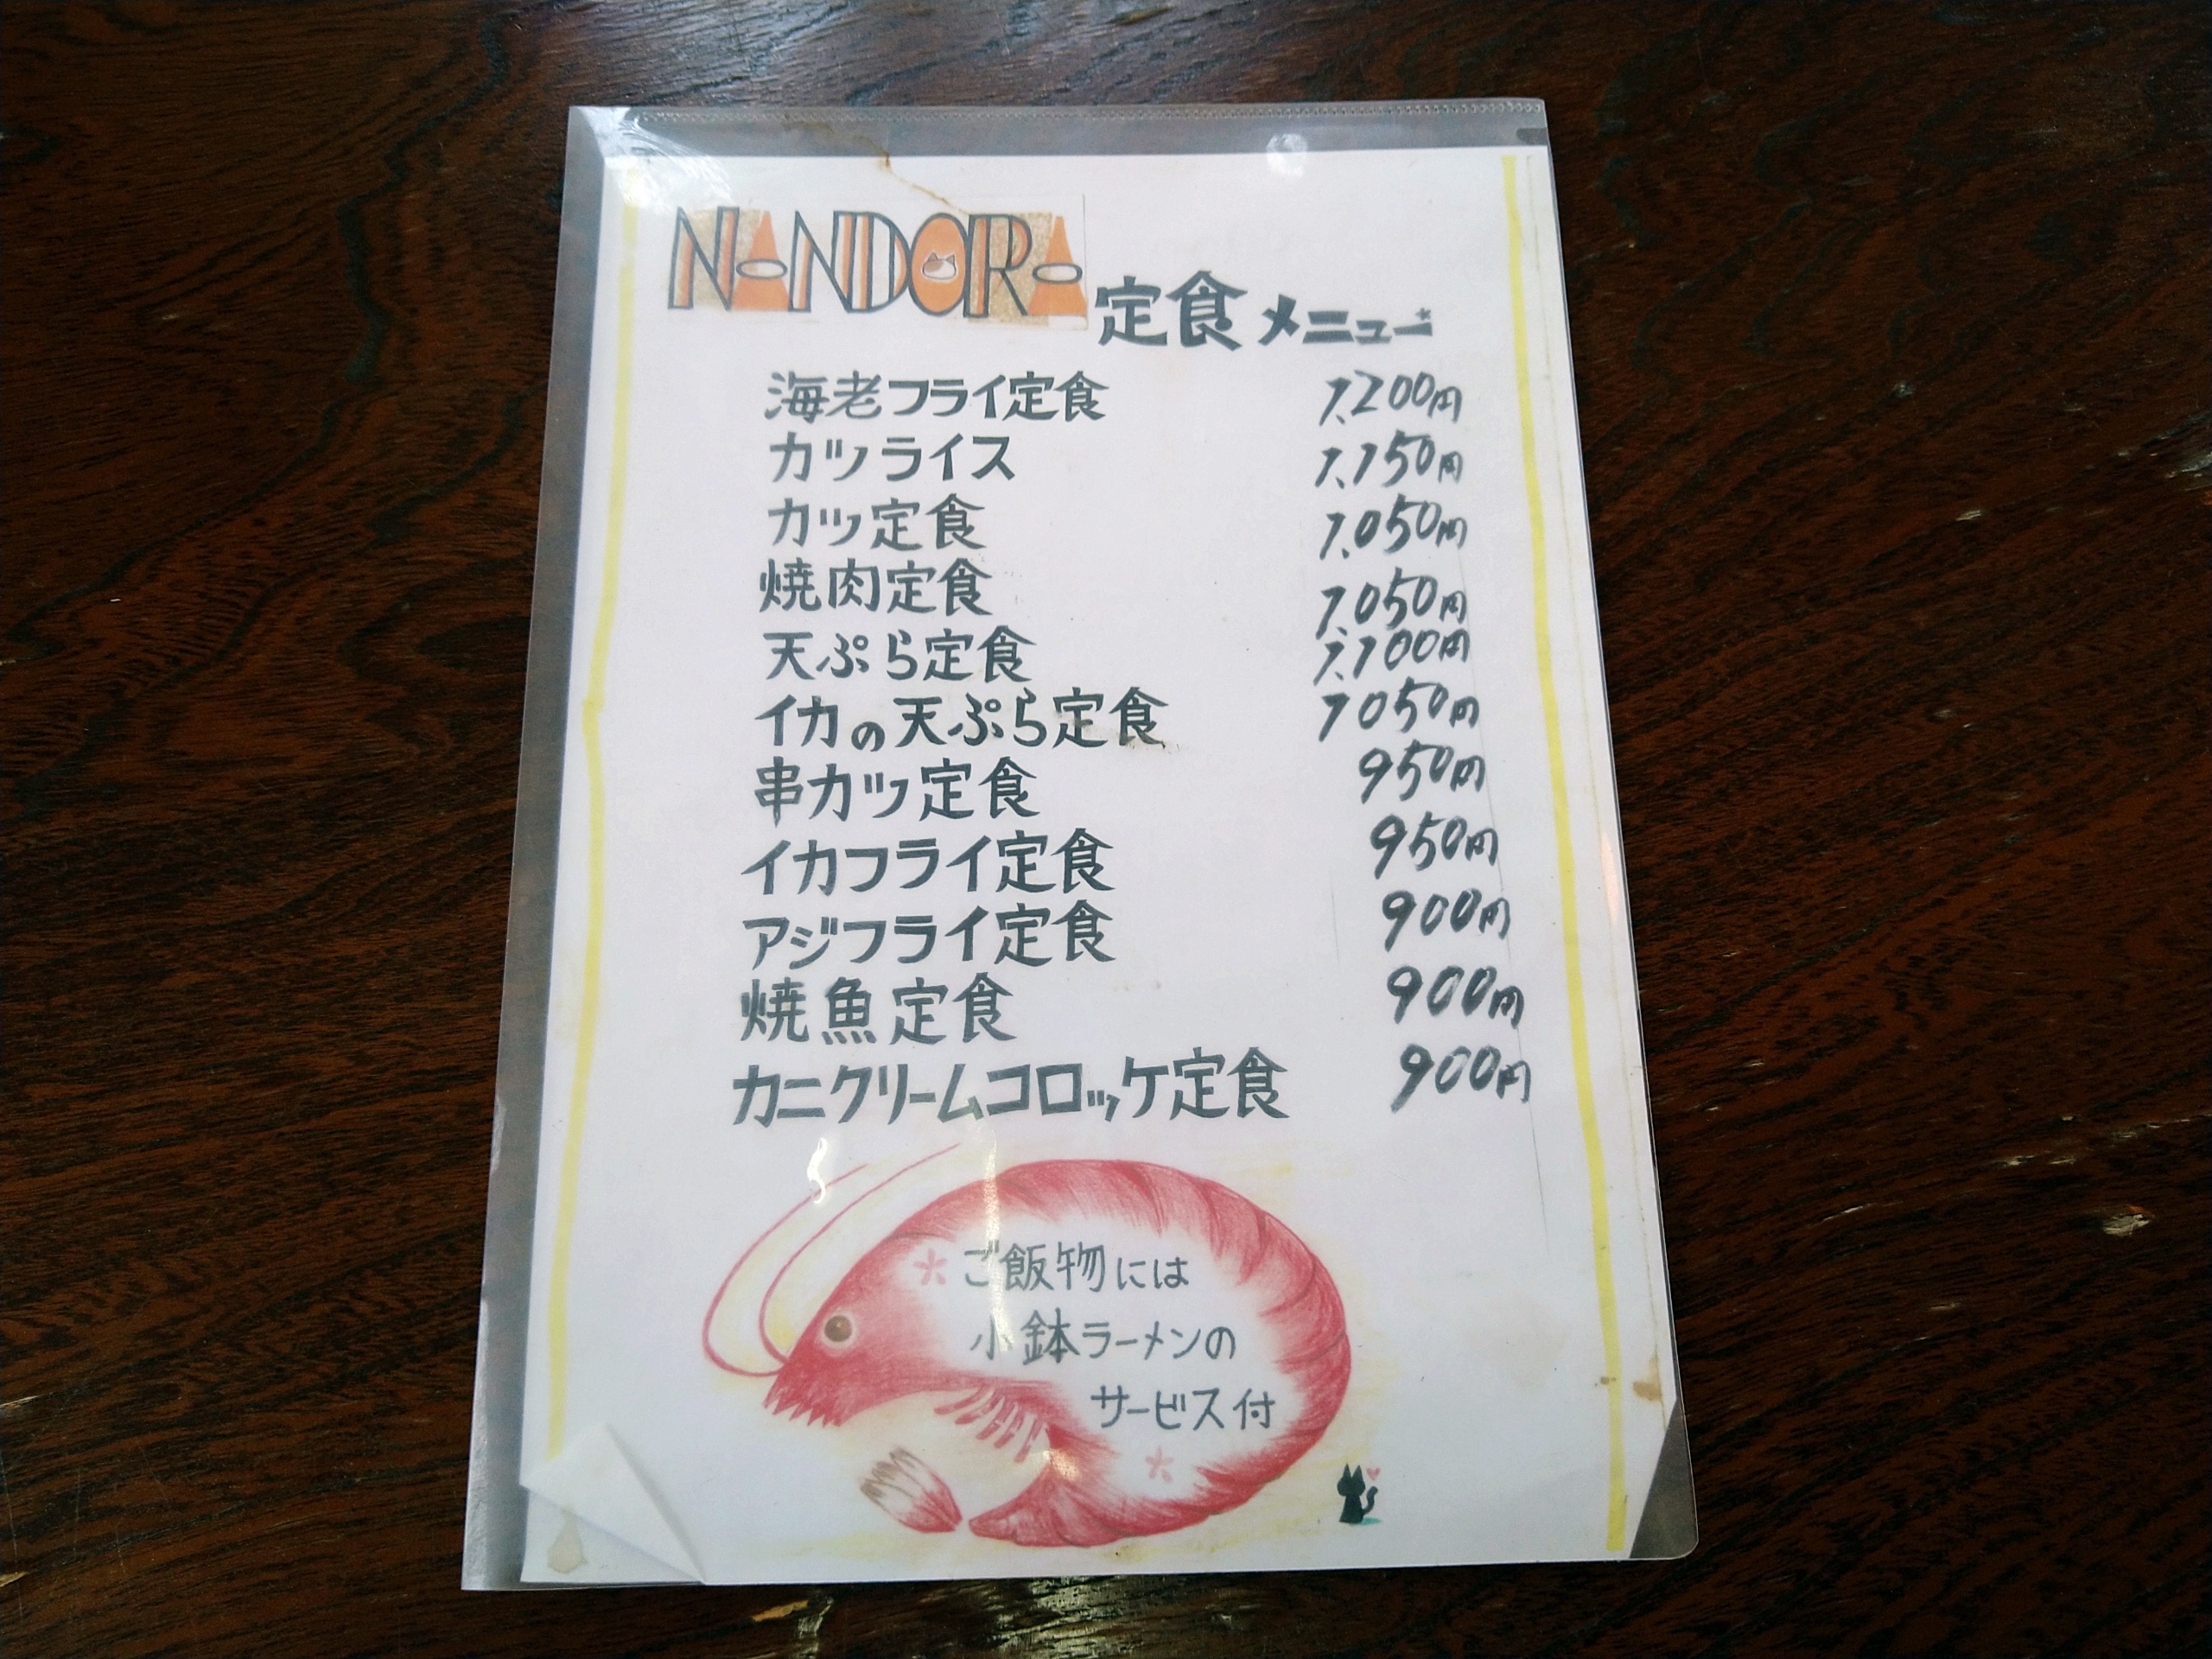 NANDORA 定食メニュー
海老フライ定食 1,200円
カツライス 1,150円
カツ定食 1,050円
焼肉定食 1,050円
天ぷら定食 1,100円
イカの天ぷら定食 1050円
串カツ定食 950円
イカフライ定食 950円
アジフライ定食 900円
焼魚定食 900円
カニクリームコロッケ定食 900円
*ご飯物には
小鉢ラーメンの
サービス付*